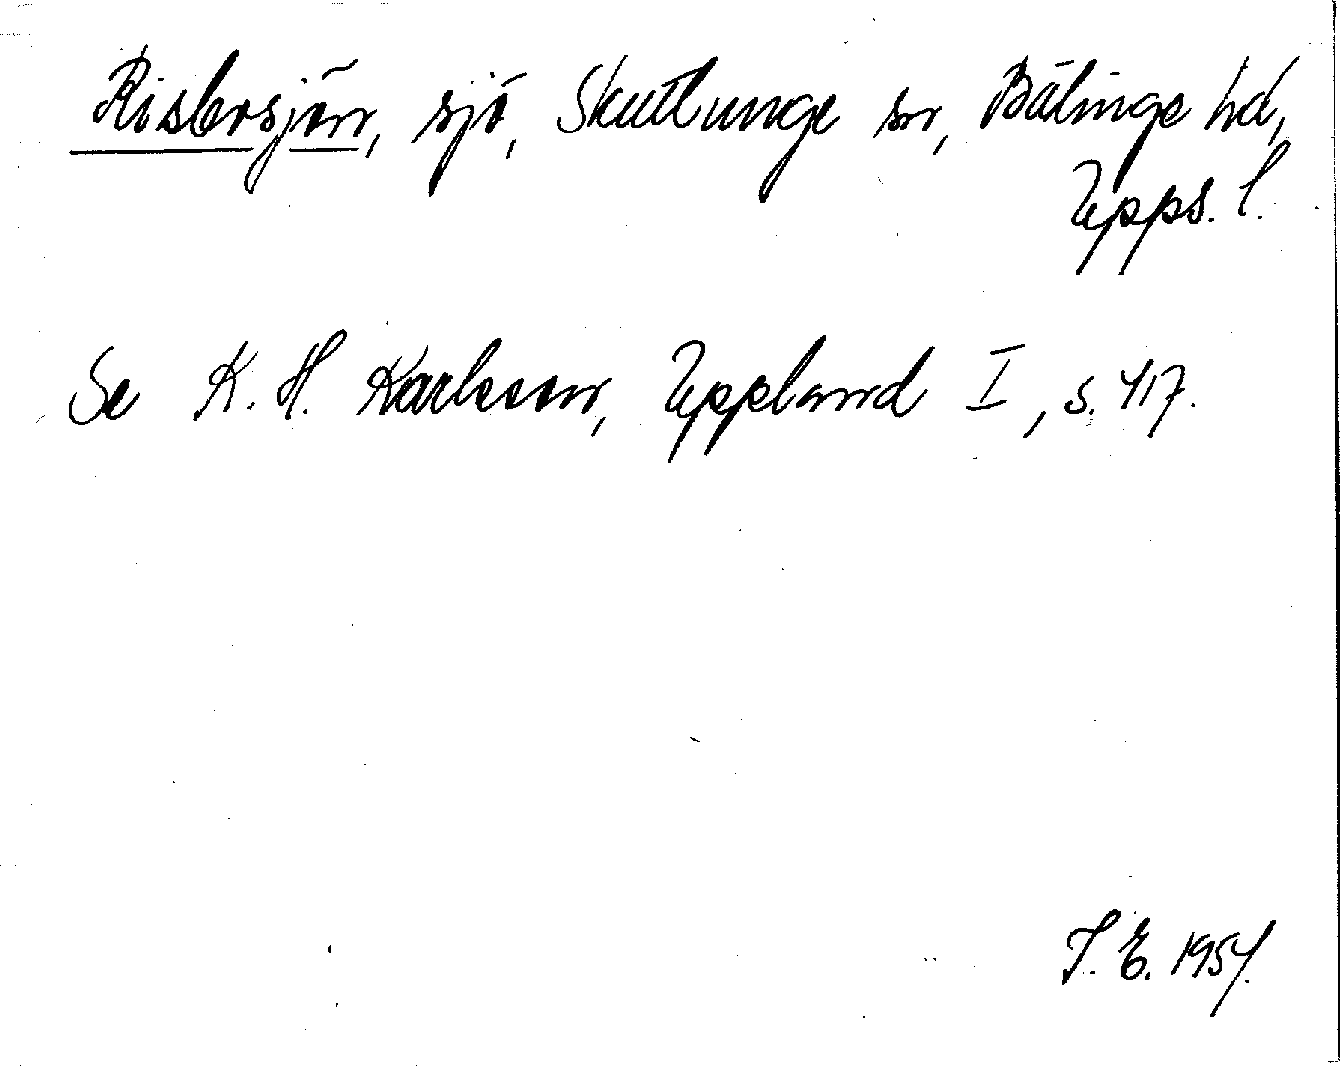 Risbosjön, sjö, Skuttunge sn, Bälinge hd,
Upps. l.
Se K. H. Karlsson, Uppland I, s. 417.
I. E. 1954.